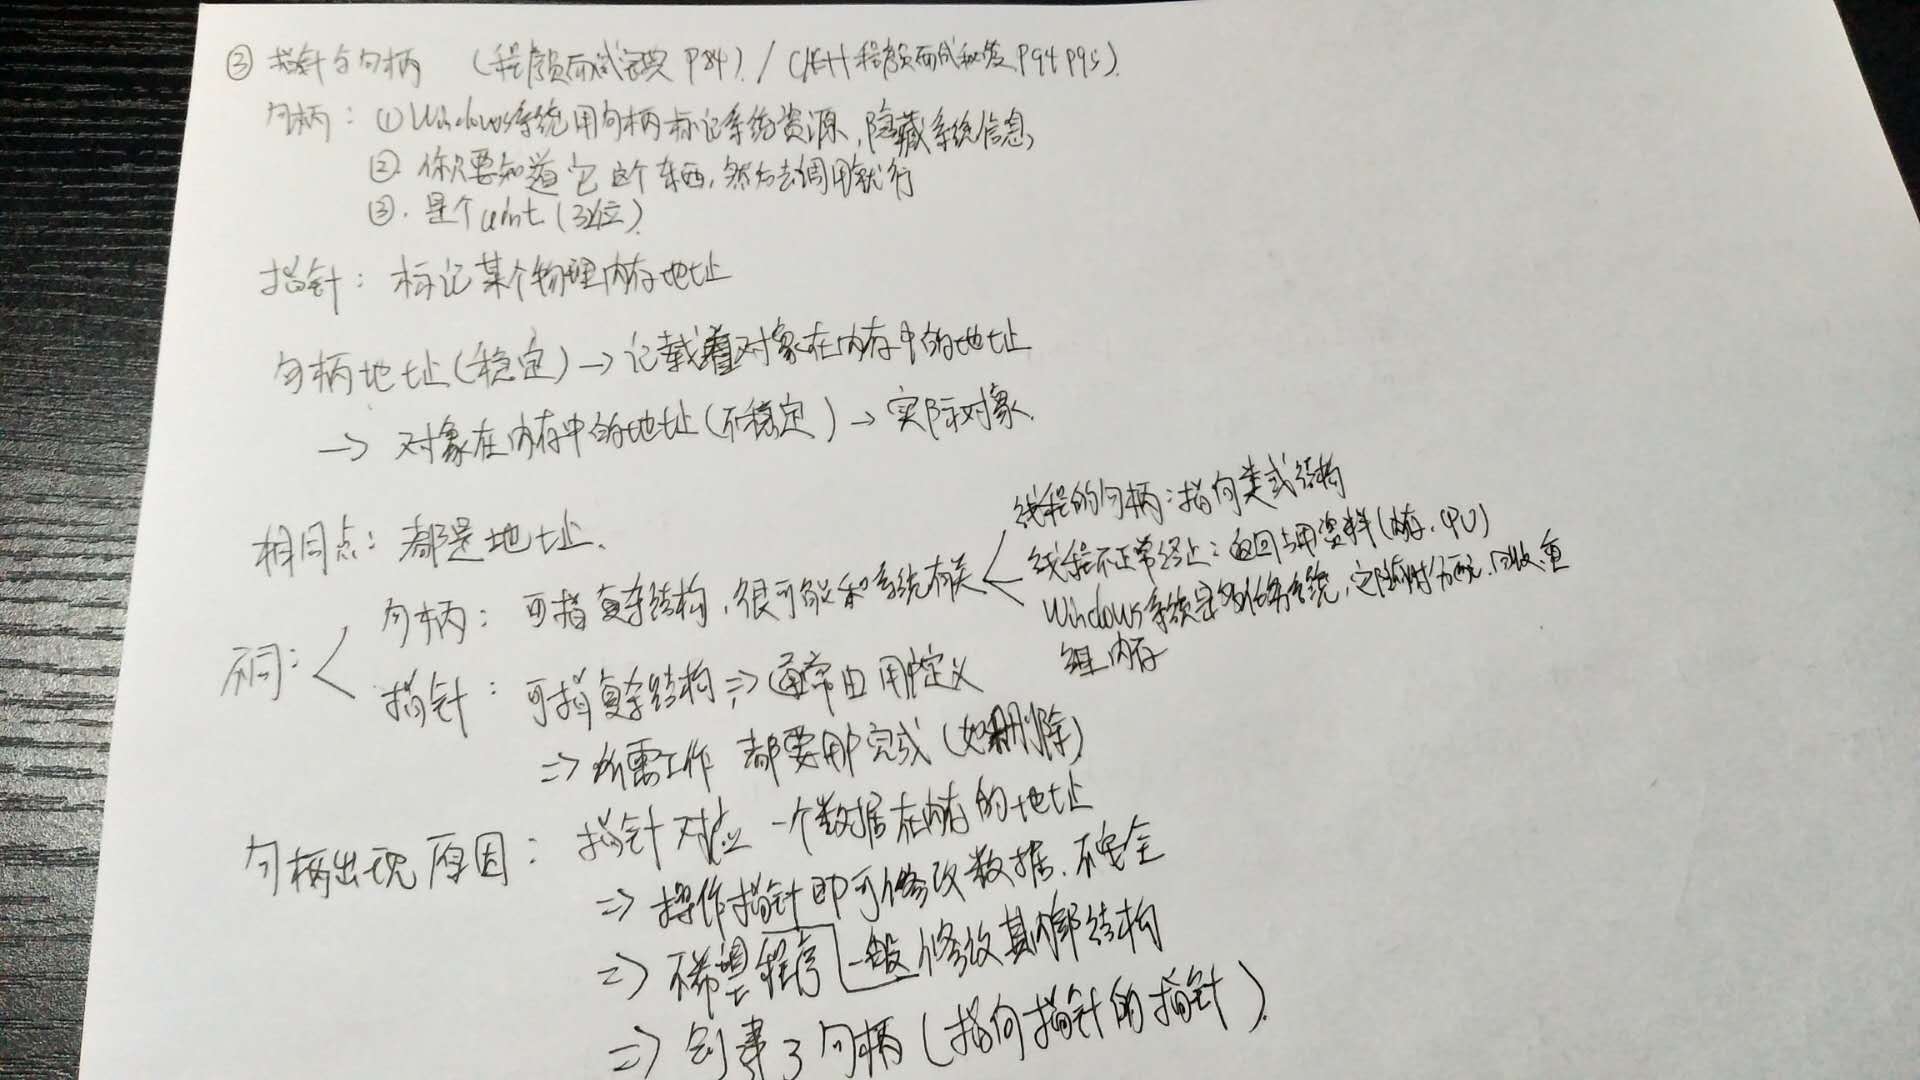 ③ 指针与句柄 (程序员面试宝典 P84) / C/C++程序员面试秘笈 P94 P95).
句柄: ①Windows系统用句柄标记系统资源,隐藏系统信息,
②. 你只要知道它这个东西,然后去调用就行
③. 是个uint (32位).
指针: 标记某个物理内存地址
句柄地址(稳定) → 记载着对象在内存中的地址
→ 对象在内存中的地址(不稳定) → 实际对象.
相同点: 都是地址.
不同:
句柄: 可指复杂结构,很可能和系统有关
线程的句柄:指向类或结构
线程不正常终止:返回占用资料(内存、CPU)
Windows系统是多任务系统,它随时分配、回收、重
组内存
指针: 可指复杂结构 ⇒ 通常由用户定义
⇒ 所需工作 都要用户完成 (如删除)
句柄出现原因: 指针对应一个数据在内存的地址
⇒ 操作指针即可修改数据.不安全
⇒ 不希望程序一般修改其内部结构
⇒ 创建了句柄 (指向指针的指针).